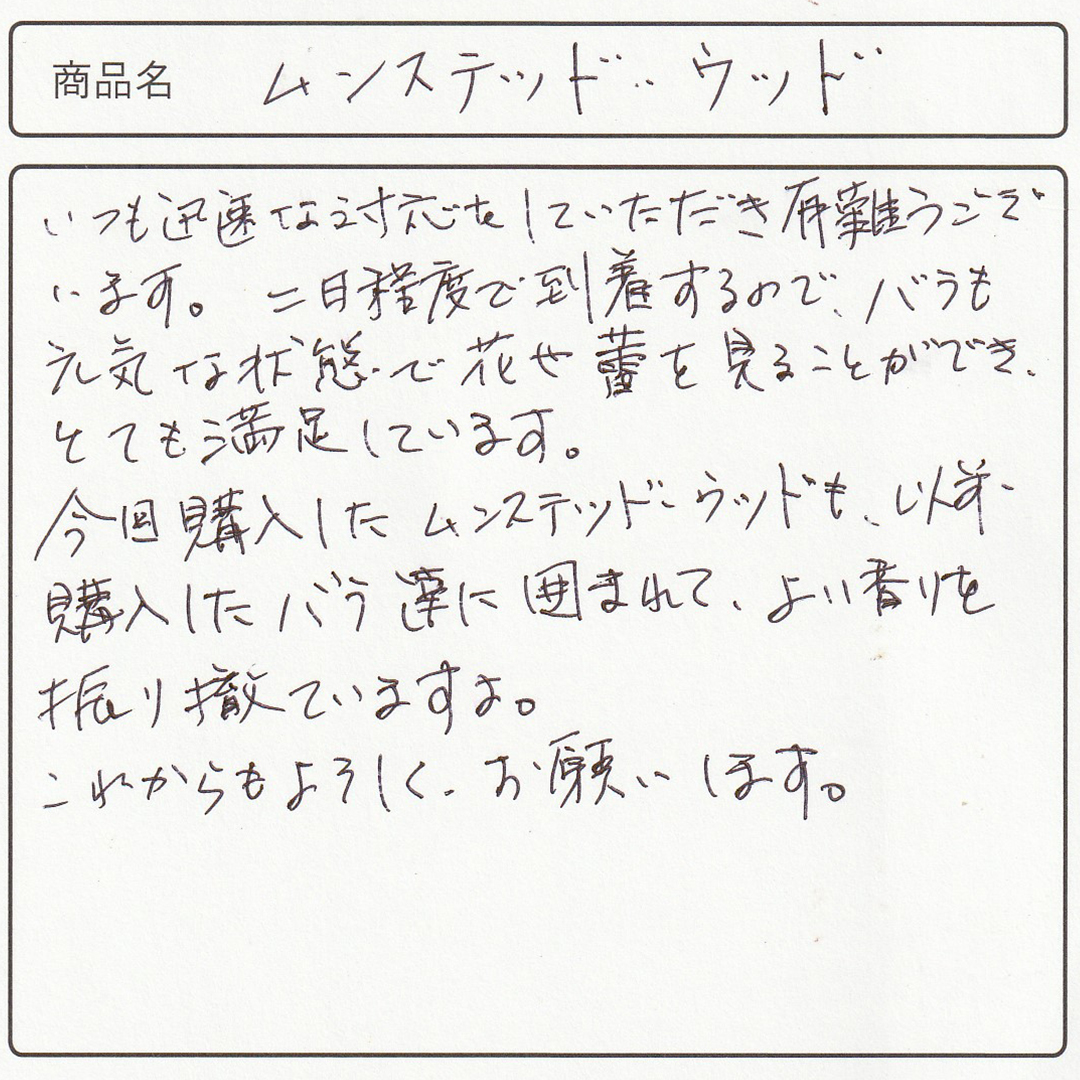 商品名 ムンステッド・ウッド
いつも迅速な対応をしていただき有難うござ
います。二日程度で到着するので、バラも
元気な状態で花や蕾を見ることができ、
とても満足しています。
今回購入したムンステッド・ウッドも、以前
購入したバラ達に囲まれて、よい香りを
振り撒ていますよ。
これからもよろしく、お願いします。